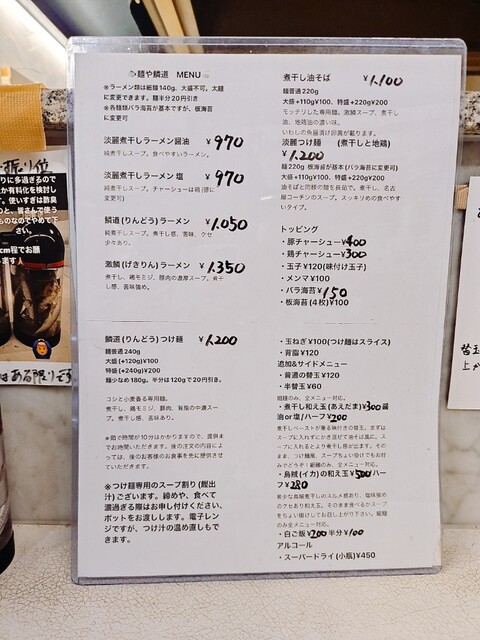 麺や鱗道 MENU
※ラーメン類は細麺140g、大盛不可。太麺
に変更できます。麺半分20円引き
※各種類バラ海苔が基本ですが、板海苔
に変更可能
淡麗煮干しラーメン醤油 ¥970
純煮干しスープ。食べやすいラーメン。
淡麗煮干しラーメン塩 ¥970
純煮干しスープ。チャーシューは鶏(豚に
変更可)
鱗道(りんどう)ラーメン ¥1.050
純煮干しスープ。煮干し感、苦味、クセ
少々あり。
激鱗(げきりん)ラーメン ¥1.350
煮干し、鶏モミジ、豚肉の濃厚スープ。煮干
し感、苦味強め。
鱗道(りんどう)つけ麺 ¥1.200
麺普通240g
大盛(+120g)¥100
特盛(+240g)¥200
麺少なめ180g。半分は120gで20円引き。
コシと小麦香る専用麺。
煮干し、鶏モミジ、豚肉、背脂の中濃スー
プ。煮干し感、苦味あり。
※茹で時間が10分はかかりますので、提供ま
でお時間いただきます。後の注文の内容によ
っては、後のお客様のお食事を先に提供させ
ていただきます。
※つけ麺専用のスープ割り(鰹出
汁)ございます。締めや、食べて
濃過ぎる際はお申し付けください、
ポットをお渡しします。電子レン
ジですが、つけ汁の温め直しもで
きます。
煮干し油そば ¥1.100
麺普通220g
大盛+110g¥100、特盛+220g¥200
モッチリした専用麺。激鱗スープ、煮干し
油、地鶏油の濃い味。
いわしの魚醤漬け卵黄が載ります。
淡麗つけ麺 (煮干しと地鶏)
¥1.200
麺220g 板海苔が基本(バラ海苔に変更可)
大盛+110g¥100、特盛+220g¥200
油そばと同様の麺を長茹で。煮干し、名古
屋コーチンのスープ。スッキリめの食べやす
いタイプ。
トッピング
・豚チャーシュー¥400
・鶏チャーシュー¥300
・玉子¥120(味付け玉子)
・メンマ¥100
・バラ海苔¥150
・板海苔(4枚)¥100
・玉ねぎ¥100(つけ麺はスライス)
・背脂¥120
追加&サイドメニュー
・普通の替玉¥120
・半替玉¥60
細麺のみ、全メニュー対応。
・煮干し和え玉(あえだま)¥300醤
油or塩/ハーフ¥200
煮干しペーストが乗る味付きの替玉。まずは
スープに入れずにかき混ぜて油そば風に。ス
ープに入れるとより煮干し感が出ます。そのま
ま、つけ麺風、スープちょい掛けでもお召
お好みでどうぞ!細麺のみ、全メニュー対応。
・烏賊(イカ)の和え玉¥500ハー
フ¥280
・白ご飯¥200半分¥100
アルコール
・スーパードライ(小瓶)¥450